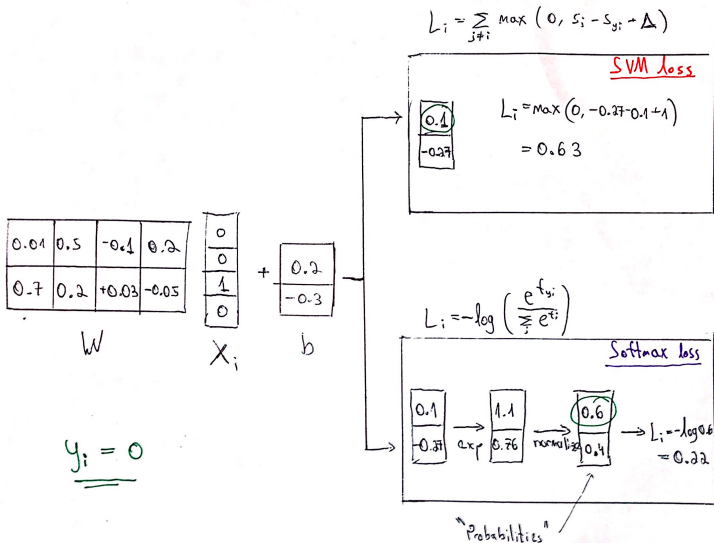 L_i = Σ_{j≠i} max (0, s_i - s_{y_i} + Δ)
SVM loss
0.1
-0.27
L_i = max (0, -0.27-0.1+1)
= 0.63
0.01 0.5 -0.1 0.2
0.7 0.2 +0.03 -0.05
W
0
0
1
0
X_i
+
0.2
-0.3
b
L_i = -log ( e^{f_{y_i}} / Σ_j e^{f_j} )
Softmax loss
0.1
-0.27
exp
1.1
0.76
normalize
0.6
0.4
L_i = -log 0.6
= 0.22
"Probabilities"
y_i = 0